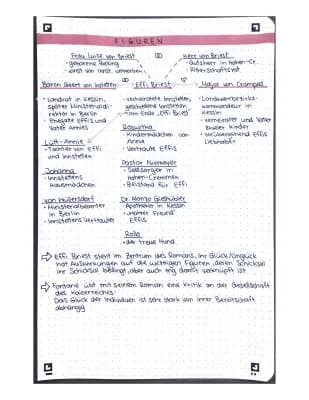 FIGUREN
Frau Luise von Briest
- geborene Belling
- einst von Innst. umworben
Herr von Briest
- Gutsherr in Hohen-Cr.
- Ritterschaftsrat
Baron Geert von Innstetten
- Landrat in Kessin,
später Ministerialdi-
rektor in Berlin
- Ehegatte Effis und
Vater Annies
Lütt-Annie
- Tochter von Effi
und Innstetten
Johanna
- Innstettens
Hausmädchen
von Wüllersdorf
- Ministerialbeamter
in Berlin
- Innstettens Vertrauter
Effi Briest
- verheiratete Innstetten,
geschiedene Innstetten,
am Ende „Effi Briest"
Roswitha
- Kindermädchen von
Annie
- Vertraute Effis
Pastor Niemeyer
- Seelsorger in
Hohen-Cremmen
- Beistand für Effi
Dr. Alonzo Gieshübler
- Apotheker in Kessin
- „wahrer Freund"
Effis
Rollo
- der treue Hund
Major von Crampas
- Landwehrbezirks-
kommandeur in
Kessin
- verheiratet und Vater
zweier Kinder
- vorübergehend Effis
Liebhaber
Effi Briest steht im Zentrum des Romans, ihr Glück/Unglück
hat Auswirkungen auf die wichtigen Figuren, deren Schicksal
ihr Schicksal bedingt, aber auch eng damit verknüpft ist.
Fontane übt mit seinem Roman eine Kritik an der Gesellschaft
des Kaiserreiches:
Das Glück der Individuen ist sehr stark von ihrer Bereitschaft
abhängig